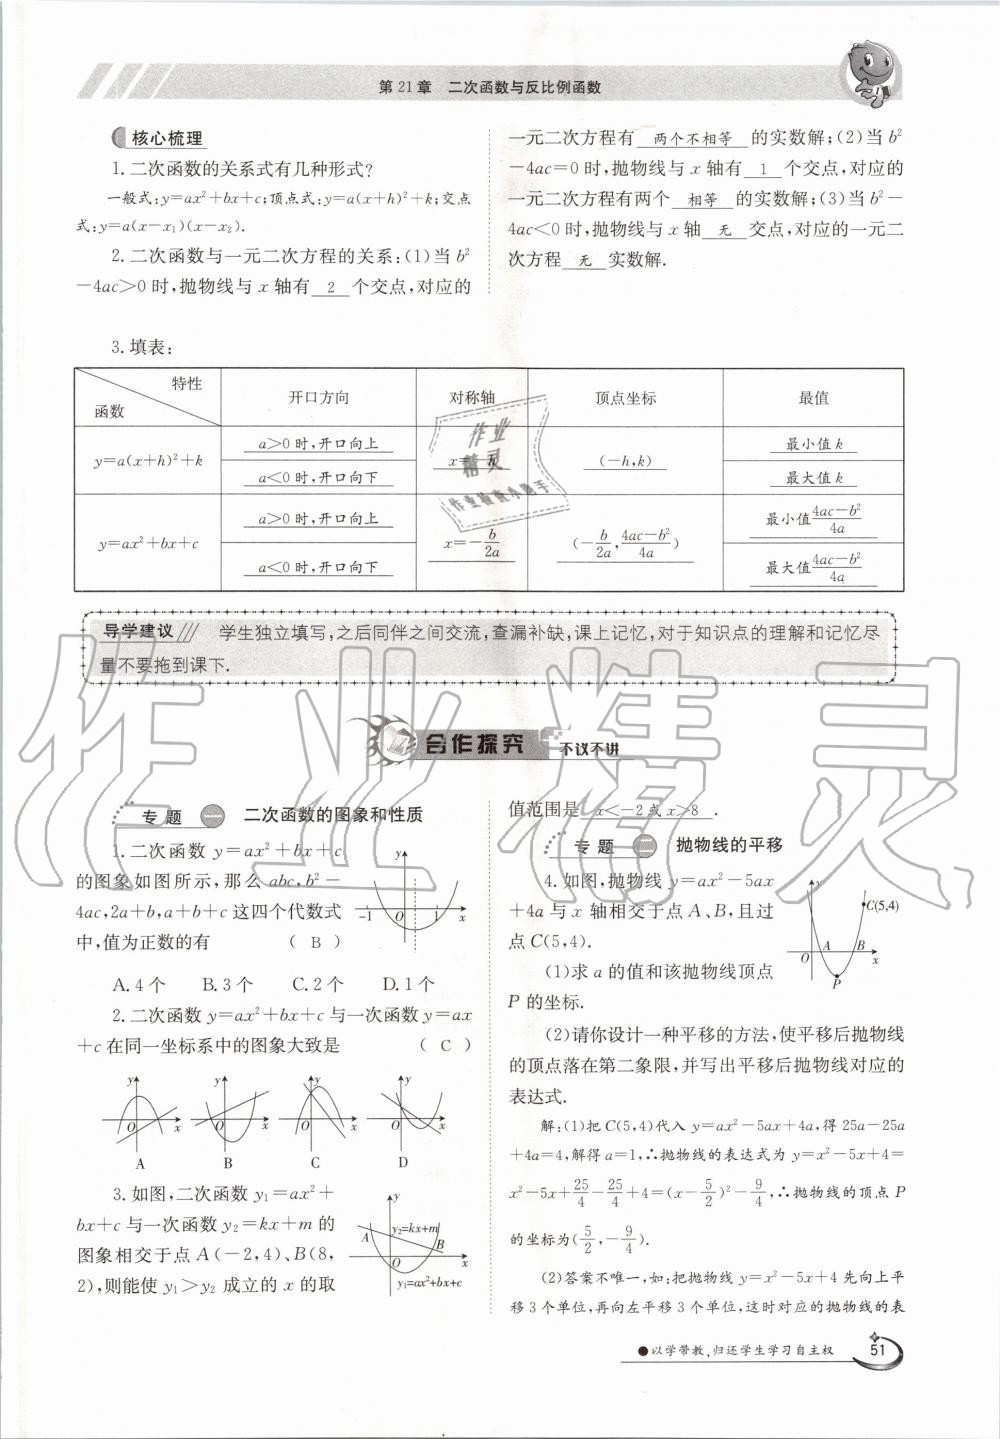 第21章 二次函数与反比例函数
核心梳理
1.二次函数的关系式有几种形式?
一般式:y=ax²+bx+c;顶点式:y=a(x+h)²+k;交点
式:y=a(x-x₁)(x-x₂).
2.二次函数与一元二次方程的关系:(1)当b²
-4ac>0时,抛物线与x轴有 2 个交点,对应的
一元二次方程有 两个不相等 的实数解;(2)当b²
-4ac=0时,抛物线与x轴有 1 个交点,对应的
一元二次方程有两个 相等 的实数解;(3)当b²-
4ac<0时,抛物线与x轴 无 交点,对应的一元二
次方程 无 实数解.
3.填表:
特性
函数
开口方向
对称轴
顶点坐标
最值
y=a(x+h)²+k
a>0时,开口向上
a<0时,开口向下
x=-h
(-h,k)
最小值k
最大值k
y=ax²+bx+c
a>0时,开口向上
a<0时,开口向下
x=-b/2a
(-b/2a,4ac-b²/4a)
最小值4ac-b²/4a
最大值4ac-b²/4a
作业
精灵
作业检查小助手
导学建议 学生独立填写,之后同伴之间交流,查漏补缺,课上记忆,对于知识点的理解和记忆尽
量不要拖到课下.
作业精灵
合作探究 不议不讲
专题一 二次函数的图象和性质
1.二次函数y=ax²+bx+c
的图象如图所示,那么abc,b²-
4ac,2a+b,a+b+c这四个代数式
中,值为正数的有 ( B )
y
-1 O 1 x
A.4个 B.3个 C.2个 D.1个
2.二次函数y=ax²+bx+c与一次函数y=ax
+c在同一坐标系中的图象大致是 ( C )
y y y y
O x O x O x O x
A B C D
3.如图,二次函数y₁=ax²+
bx+c与一次函数y₂=kx+m的
图象相交于点A(-2,4)、B(8,
2),则能使y₁>y₂成立的x的取
y
A y₂=kx+m
B
O x
y₁=ax²+bx+c
值范围是 x<-2或x>8 .
专题二 抛物线的平移
4.如图,抛物线y=ax²-5ax
+4a与x轴相交于点A、B,且过
点C(5,4).
(1)求a的值和该抛物线顶点
P的坐标.
y
C(5,4)
O A B x
P
(2)请你设计一种平移的方法,使平移后抛物线
的顶点落在第二象限,并写出平移后抛物线对应的
表达式.
解:(1)把C(5,4)代入y=ax²-5ax+4a,得25a-25a
+4a=4,解得a=1,∴抛物线的表达式为y=x²-5x+4=
x²-5x+25/4-25/4+4=(x-5/2)²-9/4,∴抛物线的顶点P
的坐标为(5/2,-9/4).
(2)答案不唯一,如:把抛物线y=x²-5x+4先向上平
移3个单位,再向左平移3个单位,这时对应的抛物线的表
●以学带教,归还学生学习自主权
51